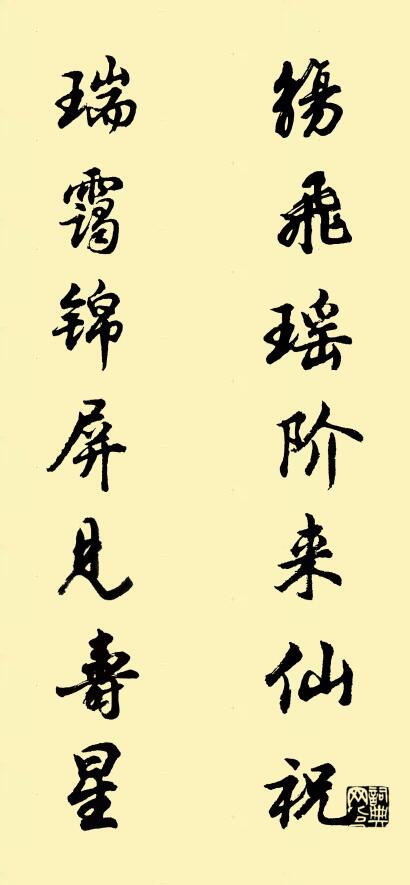 觞飞瑶阶来仙祝
瑞霭锦屏见寿星
詞典网